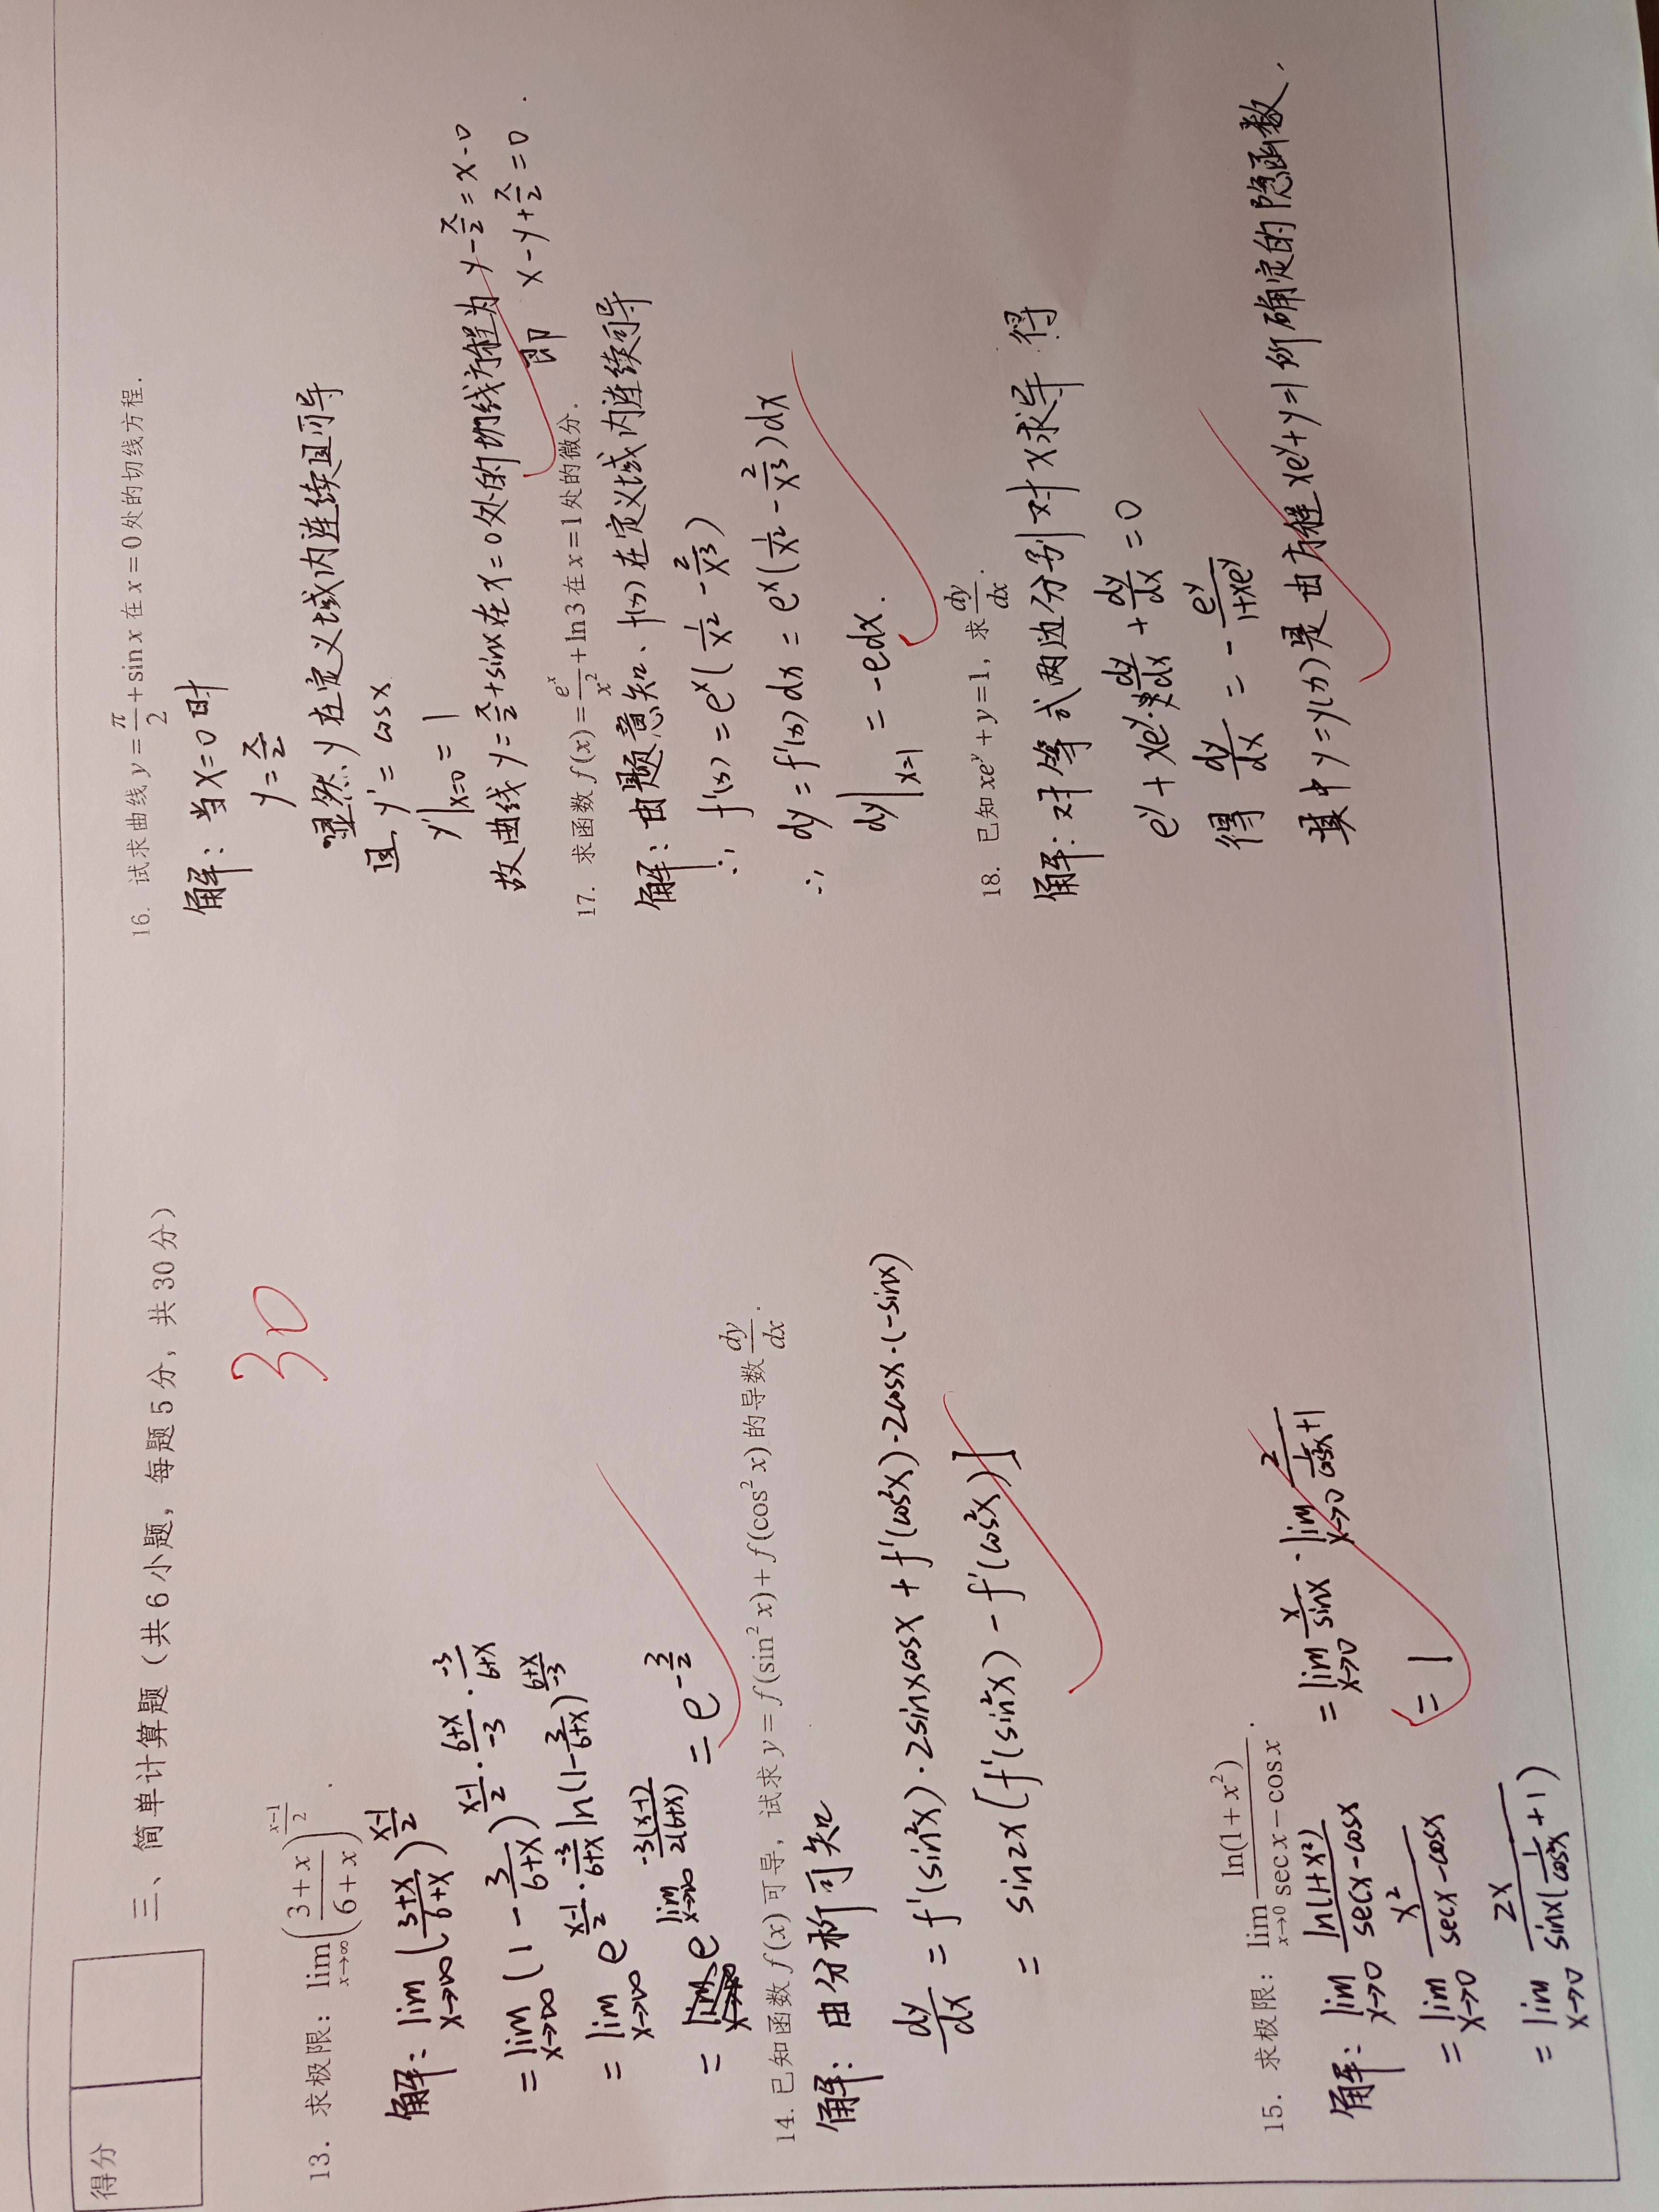 得分
三、简单计算题（共6小题，每题5分，共30分）
30
13. 求极限：lim_{x→∞} ((3+x)/(6+x))^{(x-1)/2}.
解：lim_{x→∞} ((3+x)/(6+x))^{(x-1)/2}
= lim_{x→∞} (1 - 3/(6+x))^{(x-1)/2 · (6+x)/(-3) · (-3)/(6+x)}
= lim_{x→∞} e^{(x-1)/2 · (-3)/(6+x) ln(1 - 3/(6+x))^{(6+x)/(-3)}}
= e^{lim_{x→∞} -3(x-1)/(2(6+x))} = e^{-3/2}
14. 已知函数 f(x) 可导，试求 y = f(sin² x) + f(cos² x) 的导数 dy/dx.
解：由分析可知
dy/dx = f'(sin²x)·2sinxcosx + f'(cos²x)·2cosx·(-sinx)
= sin2x[f'(sin²x) - f'(cos²x)]
15. 求极限：lim_{x→0} ln(1+x²)/(sec x - cos x).
解：lim_{x→0} ln(1+x²)/(secx - cosx)
= lim_{x→0} x²/(secx - cosx)
= lim_{x→0} 2x/(sinx(1/cos²x + 1))
= lim_{x→0} x/sinx · lim_{x→0} 2/(1/cos²x + 1)
= 1
16. 试求曲线 y = π/2 + sin x 在 x = 0 处的切线方程.
解：当x=0时
y = π/2
显然y在定义域内连续且可导
且 y' = cosx
y'|_{x=0} = 1
故曲线 y = π/2 + sinx 在 x=0 处的切线方程为 y - π/2 = x - 0
即 x - y + π/2 = 0.
17. 求函数 f(x) = e^x/x² + ln3 在 x = 1 处的微分.
解：由题意知、f(x)在定义域内连续可导
∴ f'(x) = e^x(1/x² - 2/x³)
∴ dy = f'(x)dx = e^x(1/x² - 2/x³)dx
dy|_{x=1} = -edx.
18. 已知 xe^y + y = 1，求 dy/dx.
解：对等式两边分别对x求导 得
e^y + xe^y·dy/dx + dy/dx = 0
得 dy/dx = - e^y/(1+xe^y)
其中 y=y(x) 是由方程 xe^y+y=1 所确定的隐函数.